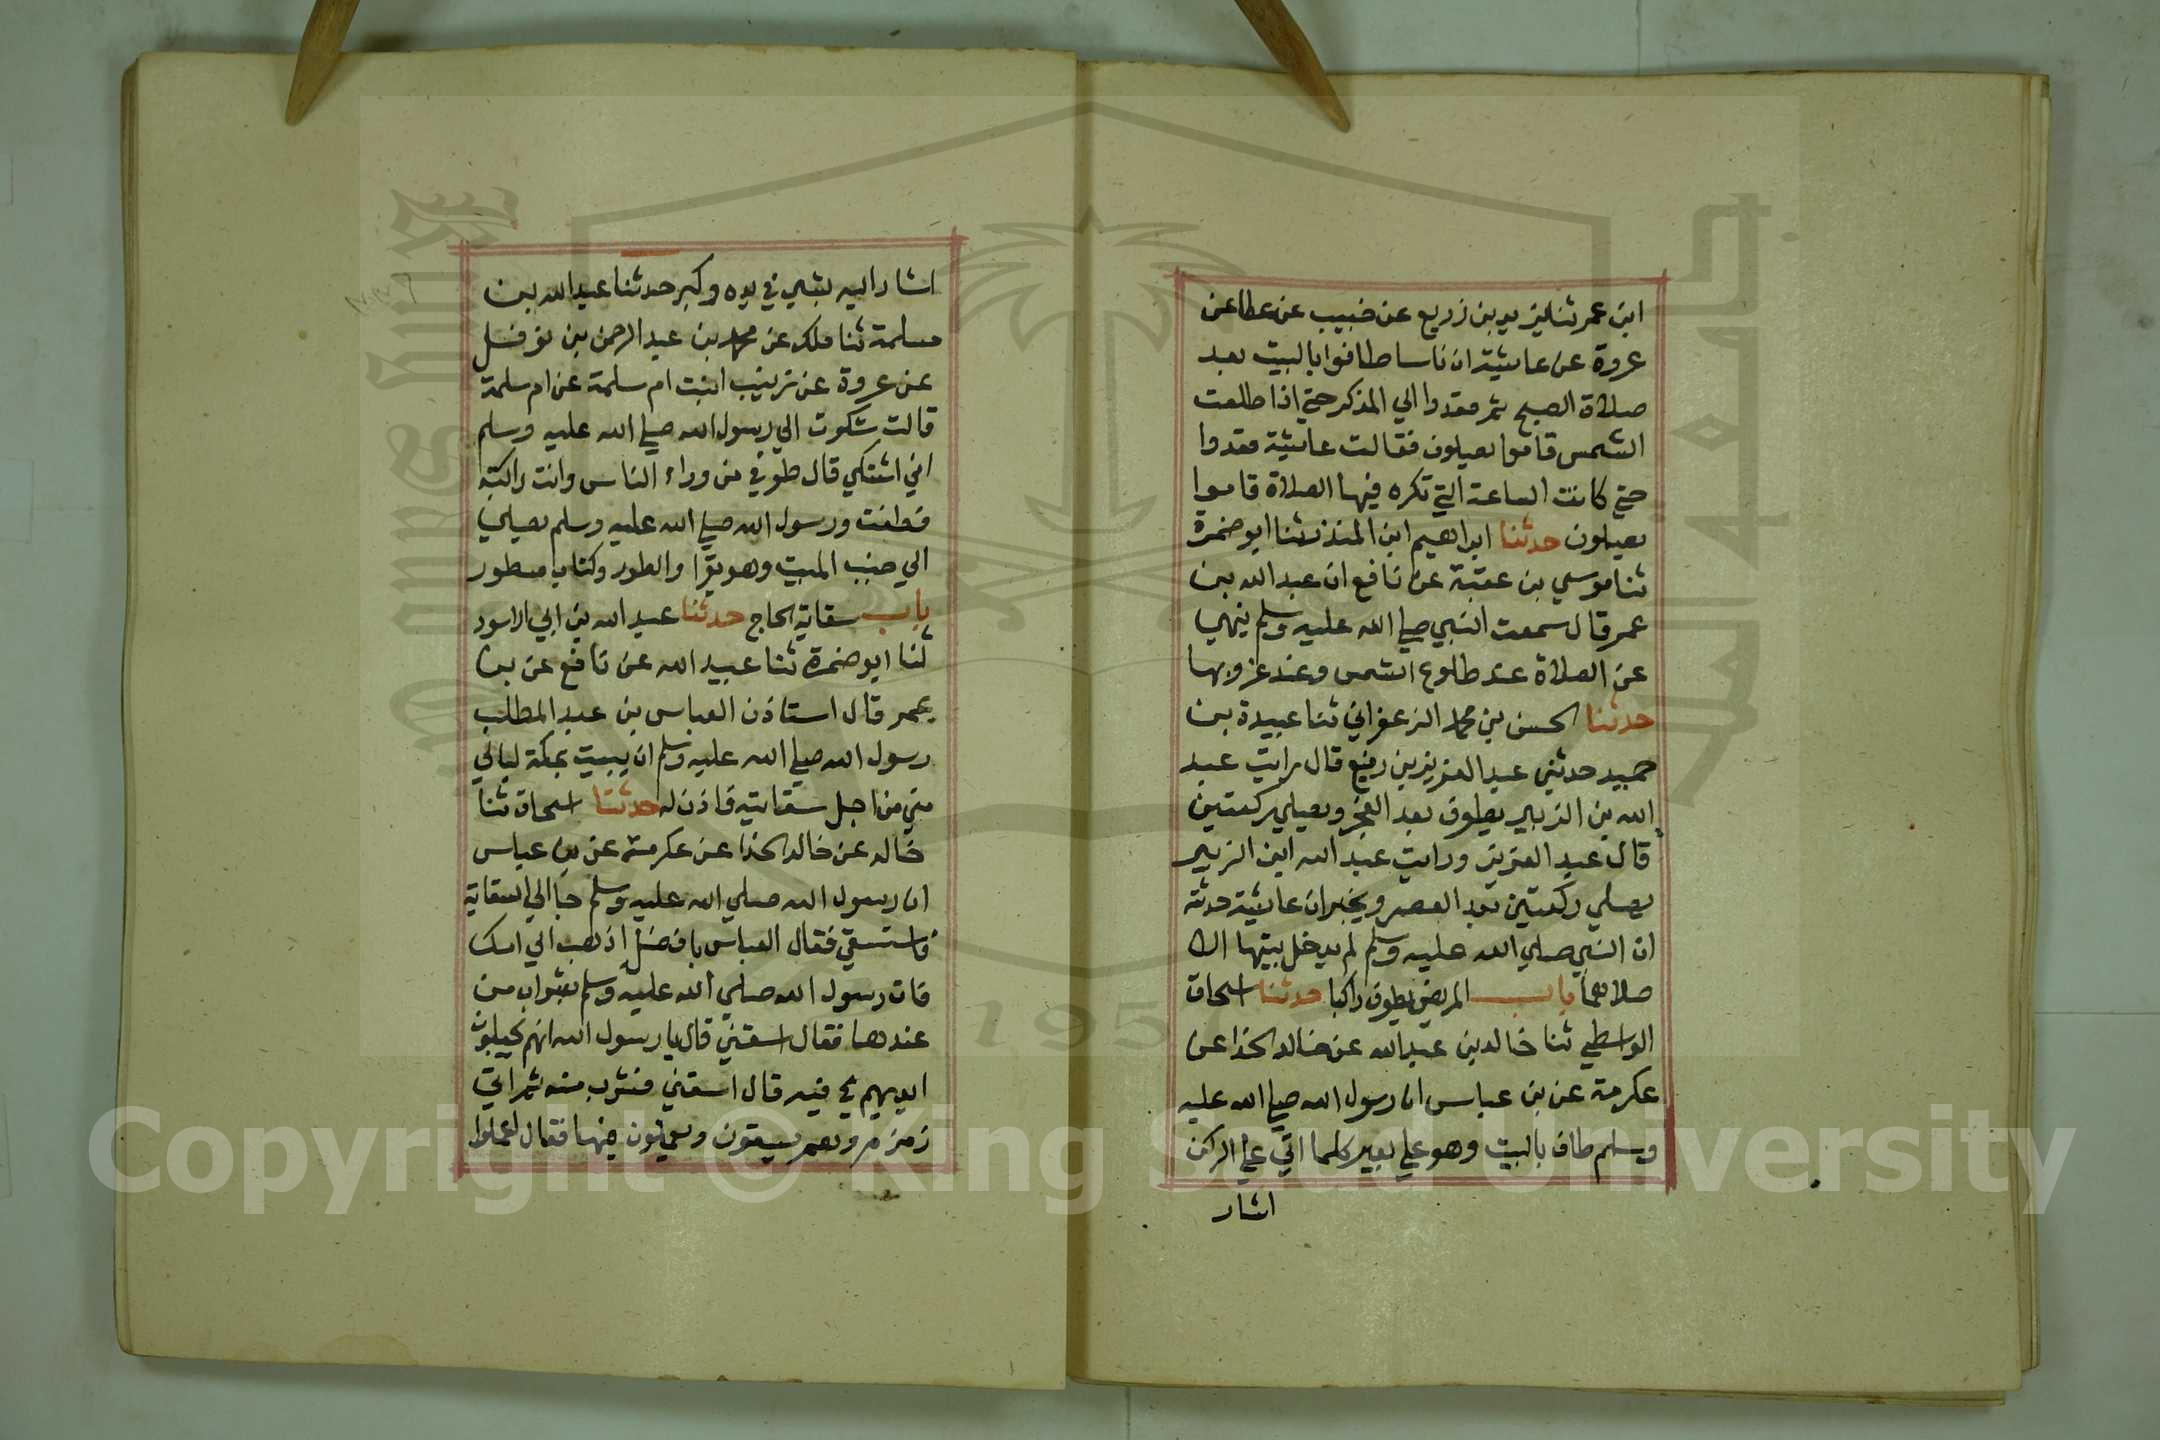 ابن عمر ثنا يزيد بن زريع عن خبيب عن عطا عن
عروة عن عايشة ان ناسا طافوا بالبيت بعد
صلاة الصبح ثم قعدوا الي المذكر حتي اذا طلعت
الشمس قاموا يصلون فقالت عايشة قعدوا
حتي كانت الساعة التي تكره فيها الصلاة قاموا
يصلون حدثنا ابراهيم ابن المنذر ثنا ابو ضمرة
ثنا موسي بن عقبة عن نافع ان عبد الله بن
عمر قال سمعت النبي صلي الله عليه وسلم ينهي
عن الصلاة عند طلوع الشمس وعند غروبها
حدثنا الحسن بن محمد الزعفراني ثنا عبيدة بن
حميد حدثني عبد العزيز بن رفيع قال رايت عبد
الله بن الزبير يطوف بعد الفجر ويصلي ركعتين
قال عبد العزيز ورايت عبد الله ابن الزبير
يصلي ركعتين بعد العصر ويخبر ان عايشة حدثته
ان النبي صلي الله عليه وسلم لم يدخل بيتها الا
صلاهما باب المريض يطوف راكبا حدثنا اسحاق
الواسطي ثنا خالد بن عبد الله عن خالد الحذا عن
عكرمة عن بن عباس ان رسول الله صلي الله عليه
وسلم طاف بالبيت وهو علي بعير كلما اتي علي الركن
اشار
اشار اليه بشي في يده وكبر حدثنا عبد الله بن
مسلمة ثنا ملك عن محمد بن عبد الرحمن بن نوفل
عن عروة عن زينب ابنت ام سلمة عن ام سلمة
قالت شكوت الي رسول الله صلي الله عليه وسلم
اني اشتكي قال طوفي من وراء الناس وانت راكبة
فطفت ورسول الله صلي الله عليه وسلم يصلي
الي جنب البيت وهو يقرا والطور وكتاب مسطور
باب سقاية الحاج حدثنا عبد الله بن ابي الاسود
ثنا ابو ضمرة ثنا عبيد الله عن نافع عن بن
عمر قال استاذن العباس بن عبد المطلب
رسول الله صلي الله عليه وسلم ان يبيت بمكة ليالي
مني من اجل سقايته فاذن له حدثنا اسحاق ثنا
خالد عن خالد الحذا عن عكرمة عن بن عباس
ان رسول الله صلي الله عليه وسلم جا الي السقاية
فاستسقي فقال العباس يا فضل اذهب الي امك
فات رسول الله صلي الله عليه وسلم بشراب من
عندها فقال اسقني قال يا رسول الله انهم يجعلون
ايديهم في فيه قال اسقني فشرب منه ثم اتي
زمزم وهم يسقون ويعملون فيها فقال اعملوا
Copyright © King Saud University
1957